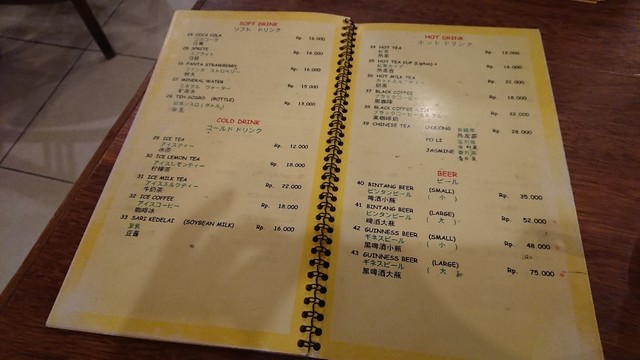 SOFT DRINK
ソフト ドリンク
24 COCA COLA Rp. 16.000
コカコーラ
可樂
25 SPRITE Rp. 16.000
スプライト
26 FANTA STRAWBERRY Rp. 16.000
ファンタ ストロベリー
27 MINERAL WATER Rp. 15.000
ミネラル ウォーター
28 TEH SOSRO (BOTTLE) Rp. 13.000
COLD DRINK
コールド ドリンク
29 ICE TEA Rp. 12.000
アイスティー
冰茶
30 ICE LEMON TEA Rp. 18.000
アイスレモンティー
檸檬茶
31 ICE MILK TEA Rp. 22.000
アイスミルクティー
牛奶茶
32 ICE COFFEE Rp. 18.000
アイスコーヒー
咖啡冰
33 SARI KEDELAI (SOYBEAN MILK) Rp. 16.000
豆乳
豆醬
HOT DRINK
ホット ドリンク
34 HOT TEA Rp. 12.000
紅茶
熱茶
35 HOT TEA CUP (Lipton) Rp. 16.000
紅茶カップ
36 HOT MILK TEA Rp. 22.000
ホットミルクティー
奶茶
37 BLACK COFFEE Rp. 18.000
ブラックコーヒー
黑咖啡
38 BLACK COFFEE MILK Rp. 22.000
黑咖啡奶
39 CHINESE TEA Rp. 28.000
PO LI
JASMINE
BEER
ビール
40 BINTANG BEER (SMALL) Rp. 35.000
ビンタンビール ( 小 )
啤酒小瓶
41 BINTANG BEER (LARGE) Rp. 52.000
ビンタンビール ( 大 )
啤酒大瓶
42 GUINNESS BEER (SMALL) Rp. 48.000
ギネスビール ( 小 )
黑啤酒小瓶
43 GUINNESS BEER (LARGE) Rp. 75.000
ギネスビール ( 大 )
黑啤酒大瓶